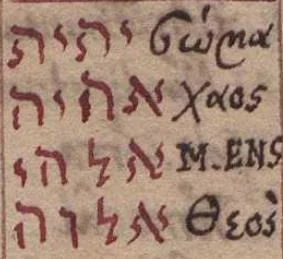 יהיה σώμα
אהיה χαος
אלהי M.ENS
אלוה Θεός